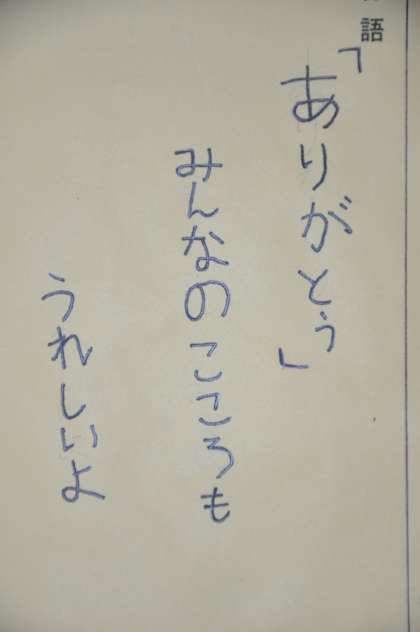 語
「ありがとう」
みんなのこころも
うれしいよ